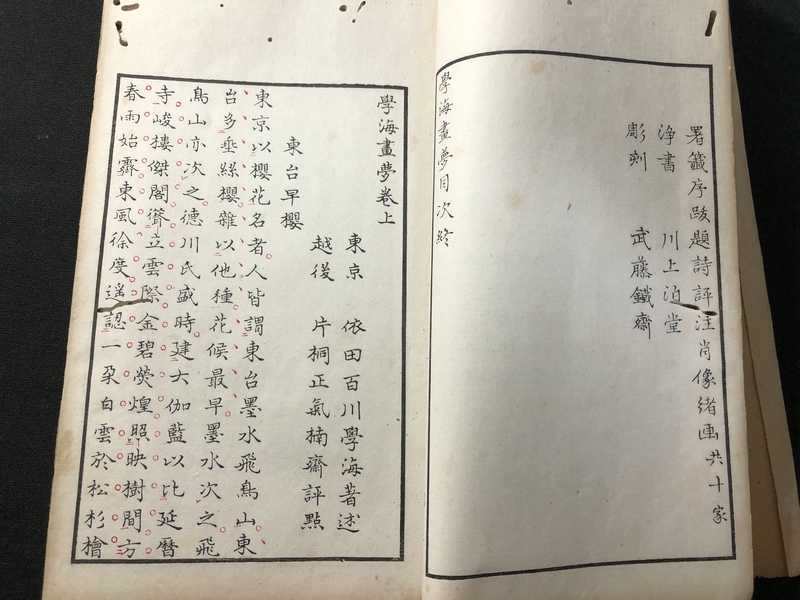 署籤序跋題詩評注肖像緒画共十家
浄書 川上泊堂
彫刻 武藤鐵齋
學海畫夢目次終
學海畫夢卷上
東京 依田百川學海著述
越後 片桐正氣楠齋評點
東台早櫻
東京以櫻花名者人皆謂東台墨水飛鳥山東
台多垂絲櫻雜以他種花候最早墨水次之飛
鳥山亦次之德川氏盛時建大伽藍以比延曆
寺峻樓傑閣聳立雲際金碧熒煌照映樹間方
春雨始霽東風徐度遥認一朶白雲於松杉檜